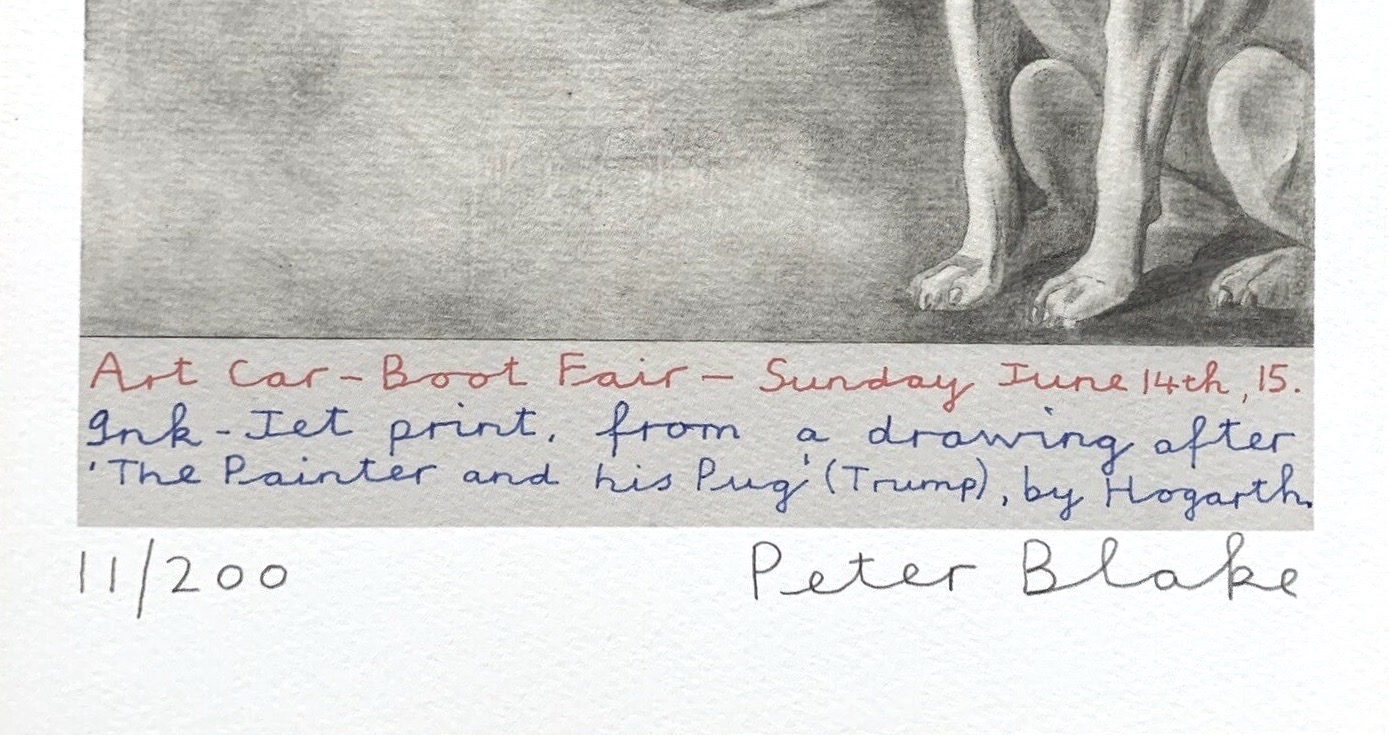 Art Car-Boot Fair - Sunday June 14th, 15.
Ink-Jet print, from a drawing after
'The Painter and his Pug' (Trump), by Hogarth.
11/200 Peter Blake